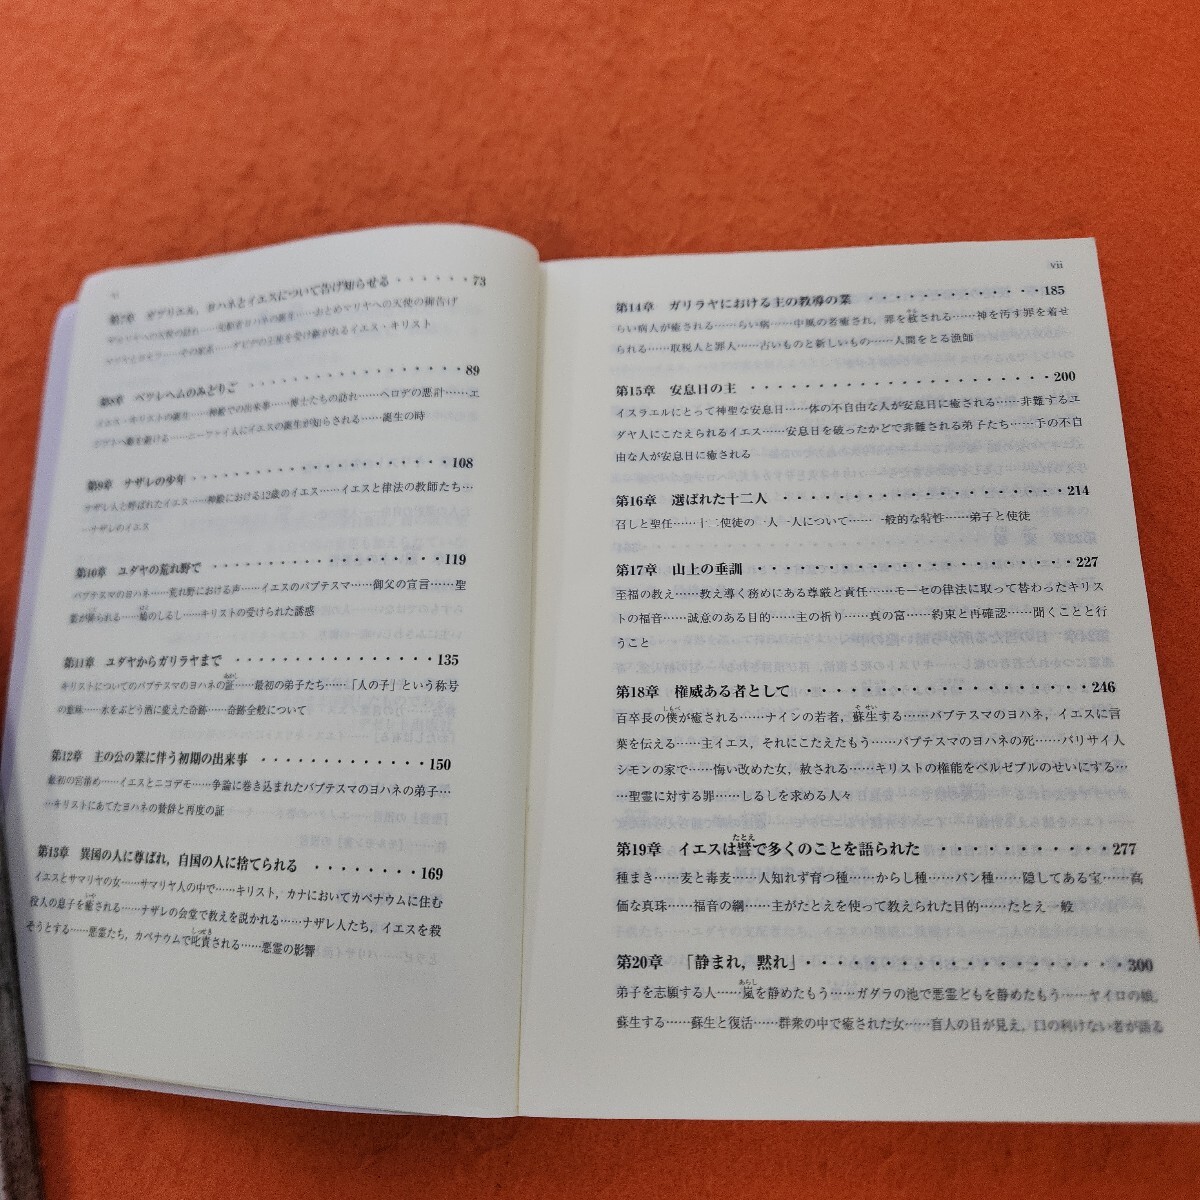 第7章 ガブリエル，ヨハネとイエスについて告げ知らせる ・・・・・・73
ザカリヤへの天使の訪れ……先駆者ヨハネの誕生……おとめマリヤへの天使の御告げ
マリヤとヨセフ……その家系……ダビデの王座を受け継がれるイエス・キリスト
第8章 ベツレヘムのみどりご ・・・・・・・・・・・・・・・・89
イエス・キリストの誕生……神殿での出来事……博士たちの訪れ……ヘロデの悪計……エ
ジプトへ難を避ける……ニーファイ人にイエスの誕生が知らされる……誕生の時
第9章 ナザレの少年・・・・・・・・・・・・・・・・・・・108
ナザレ人と呼ばれたイエス……神殿における12歳のイエス……イエスと律法の教師たち…
…ナザレのイエス
第10章 ユダヤの荒れ野で ・・・・・・・・・・・・・・・・119
バプテスマのヨハネ……荒れ野における声……イエスのバプテスマ……御父の宣言……聖
霊が降られる……鳩のしるし……キリストの受けられた誘惑
第11章 ユダヤからガリラヤまで ・・・・・・・・・・・・・135
キリストについてのバプテスマのヨハネの証……最初の弟子たち……「人の子」という称号
の意味……水をぶどう酒に変えた奇跡……奇跡全般について
第12章 主の公の業に伴う初期の出来事 ・・・・・・・・・・・150
最初の宮清め……イエスとニコデモ……争論に巻き込まれたバプテスマのヨハネの弟子…
…キリストにあてたヨハネの賛辞と再度の証
第13章 異国の人に尊ばれ，自国の人に捨てられる ・・・・・・・・169
イエスとサマリヤの女……サマリヤ人の中で……キリスト，カナにおいてカペナウムに住む
役人の息子を癒される……ナザレの会堂で教えを説かれる……ナザレ人たち，イエスを殺
そうとする……悪霊たち，カペナウムで叱責される……悪霊の影響
vii
第14章 ガリラヤにおける主の教導の業 ・・・・・・・・・・・・185
らい病人が癒される……らい病……中風の者癒され，罪を赦される……神を汚す罪を着せ
られる……取税人と罪人……古いものと新しいもの……人間をとる漁師
第15章 安息日の主 ・・・・・・・・・・・・・・・・・・・・200
イスラエルにとって神聖な安息日……体の不自由な人が安息日に癒される……非難するユ
ダヤ人にこたえられるイエス……安息日を破ったかどで非難される弟子たち……手の不自
由な人が安息日に癒される
第16章 選ばれた十二人 ・・・・・・・・・・・・・・・・・・214
召しと聖任……十二使徒の一人一人について……一般的な特性……弟子と使徒
第17章 山上の垂訓 ・・・・・・・・・・・・・・・・・・・・227
至福の教え……教え導く務めにある尊厳と責任……モーセの律法に取って替わったキリス
トの福音……誠意のある目的……主の祈り……真の富……約束と再確認……聞くことと行
うこと
第18章 権威ある者として ・・・・・・・・・・・・・・・・・246
百卒長の僕が癒される……ナインの若者，蘇生する……バプテスマのヨハネ，イエスに言
葉を伝える……主イエス，それにこたえたもう……バプテスマのヨハネの死……パリサイ人
シモンの家で……悔い改めた女，赦される……キリストの権能をベルゼブルのせいにする…
…聖霊に対する罪……しるしを求める人々
第19章 イエスは譬で多くのことを語られた ・・・・・・・・・・277
種まき……麦と毒麦……人知れず育つ種……からし種……パン種……隠してある宝……高
価な真珠……福音の網……主がたとえを使って教えられた目的……たとえ一般
第20章 「静まれ，黙れ」・・・・・・・・・・・・・・・・・・300
弟子を志願する人……嵐を静めたもう……ガダラの地で悪霊どもを静めたもう……ヤイロの娘，
蘇生する……蘇生と復活……群衆の中で癒された女……盲人の目が見え，口の利けない者が語る